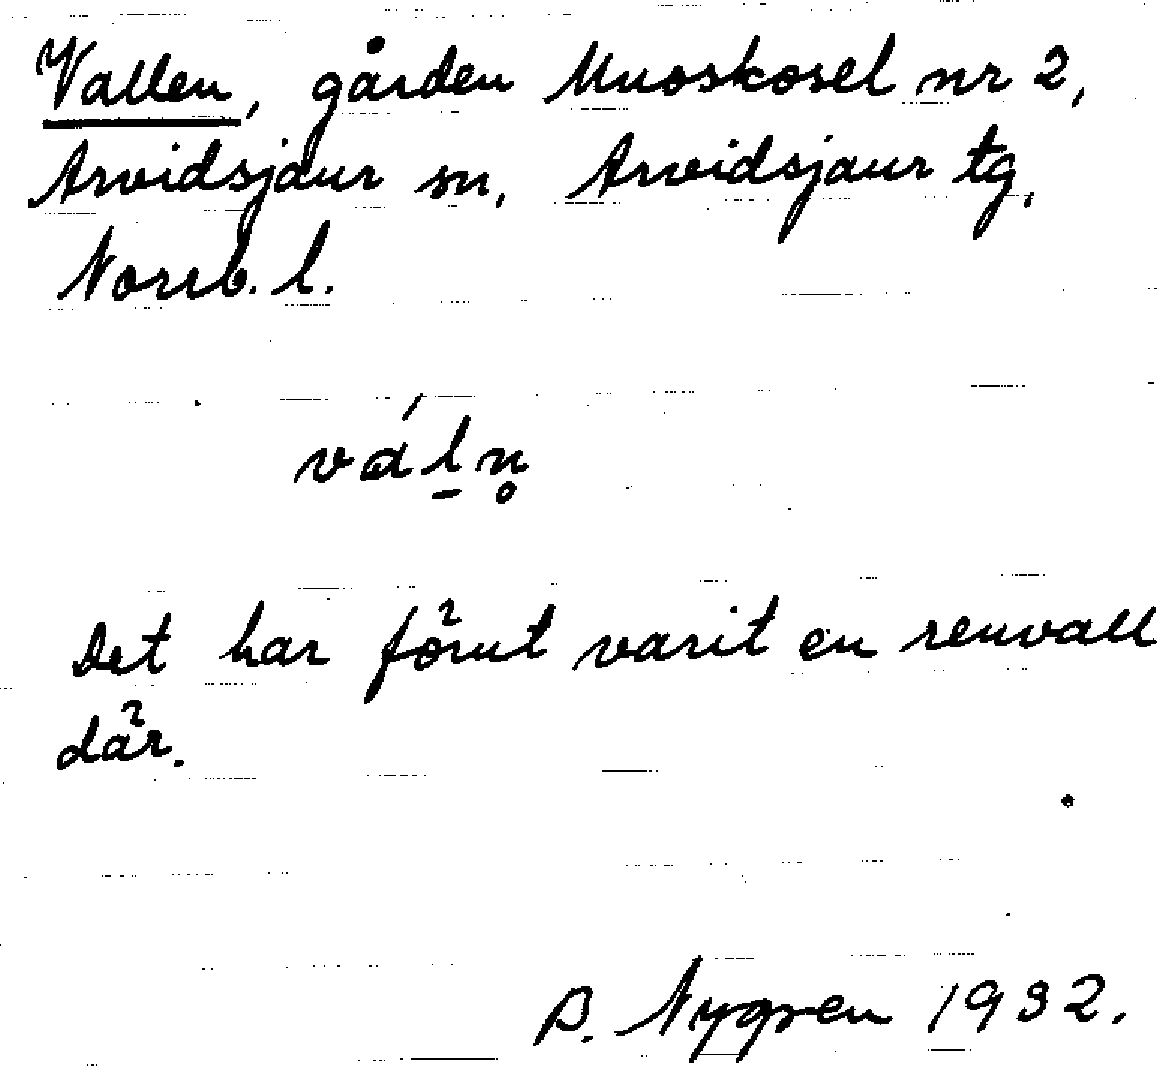 Vallen, gården Muoskosel nr 2,
Arvidsjaur sn, Arvidsjaur tg,
Norrb. l.
vál̲n̥
Det har förut varit en renvall
där.
B. Nygren 1932.